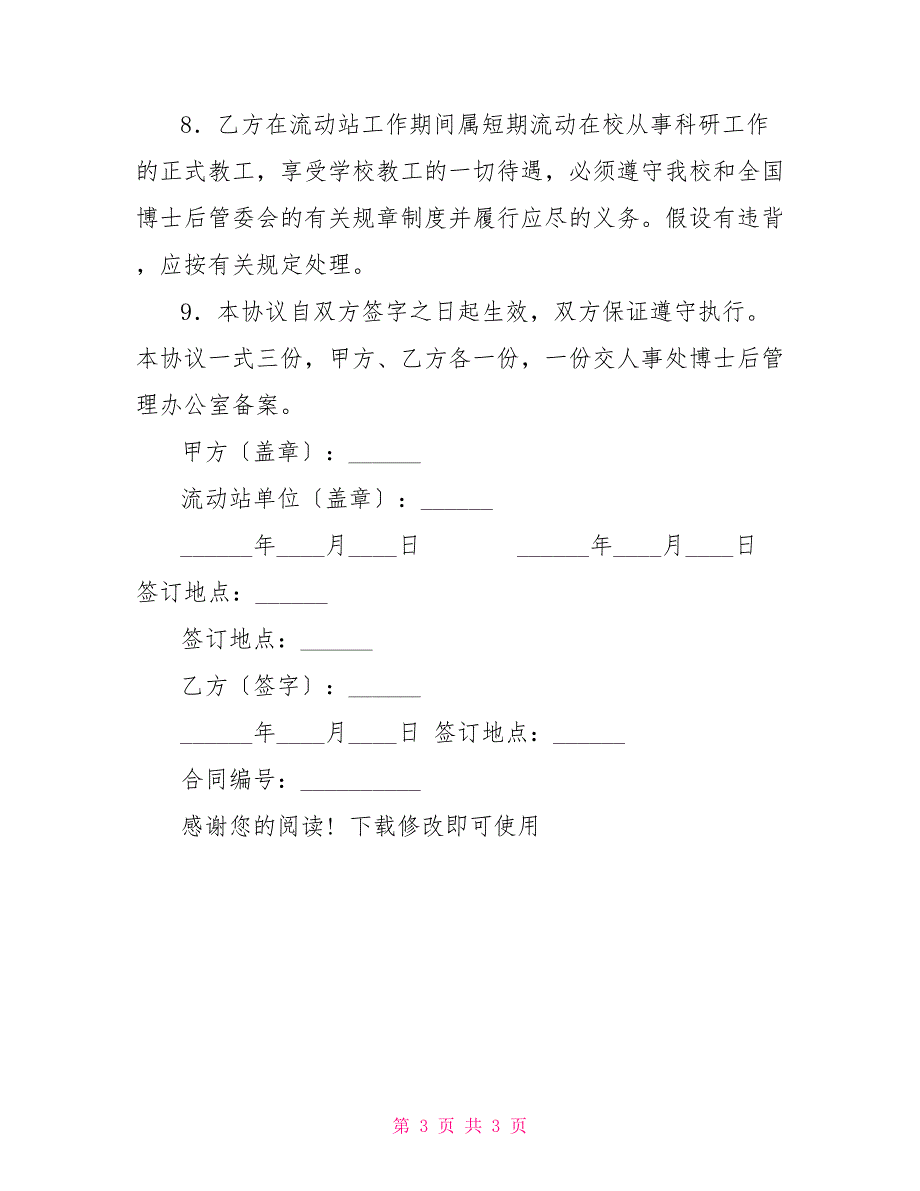 8．乙方在流动站工作期间属短期流动在校从事科研工作
的正式教工，享受学校教工的一切待遇，必须遵守我校和全国
博士后管委会的有关规章制度并履行应尽的义务。假设有违背
，应按有关规定处理。
9．本协议自双方签字之日起生效，双方保证遵守执行。
本协议一式三份，甲方、乙方各一份，一份交人事处博士后管
理办公室备案。
甲方〔盖章〕：______
流动站单位〔盖章〕：______
______年____月____日 ______年____月____日
签订地点：______
签订地点：______
乙方〔签字〕：______
______年____月____日 签订地点：______
合同编号：__________
感谢您的阅读! 下载修改即可使用
第 3 页 共 3 页